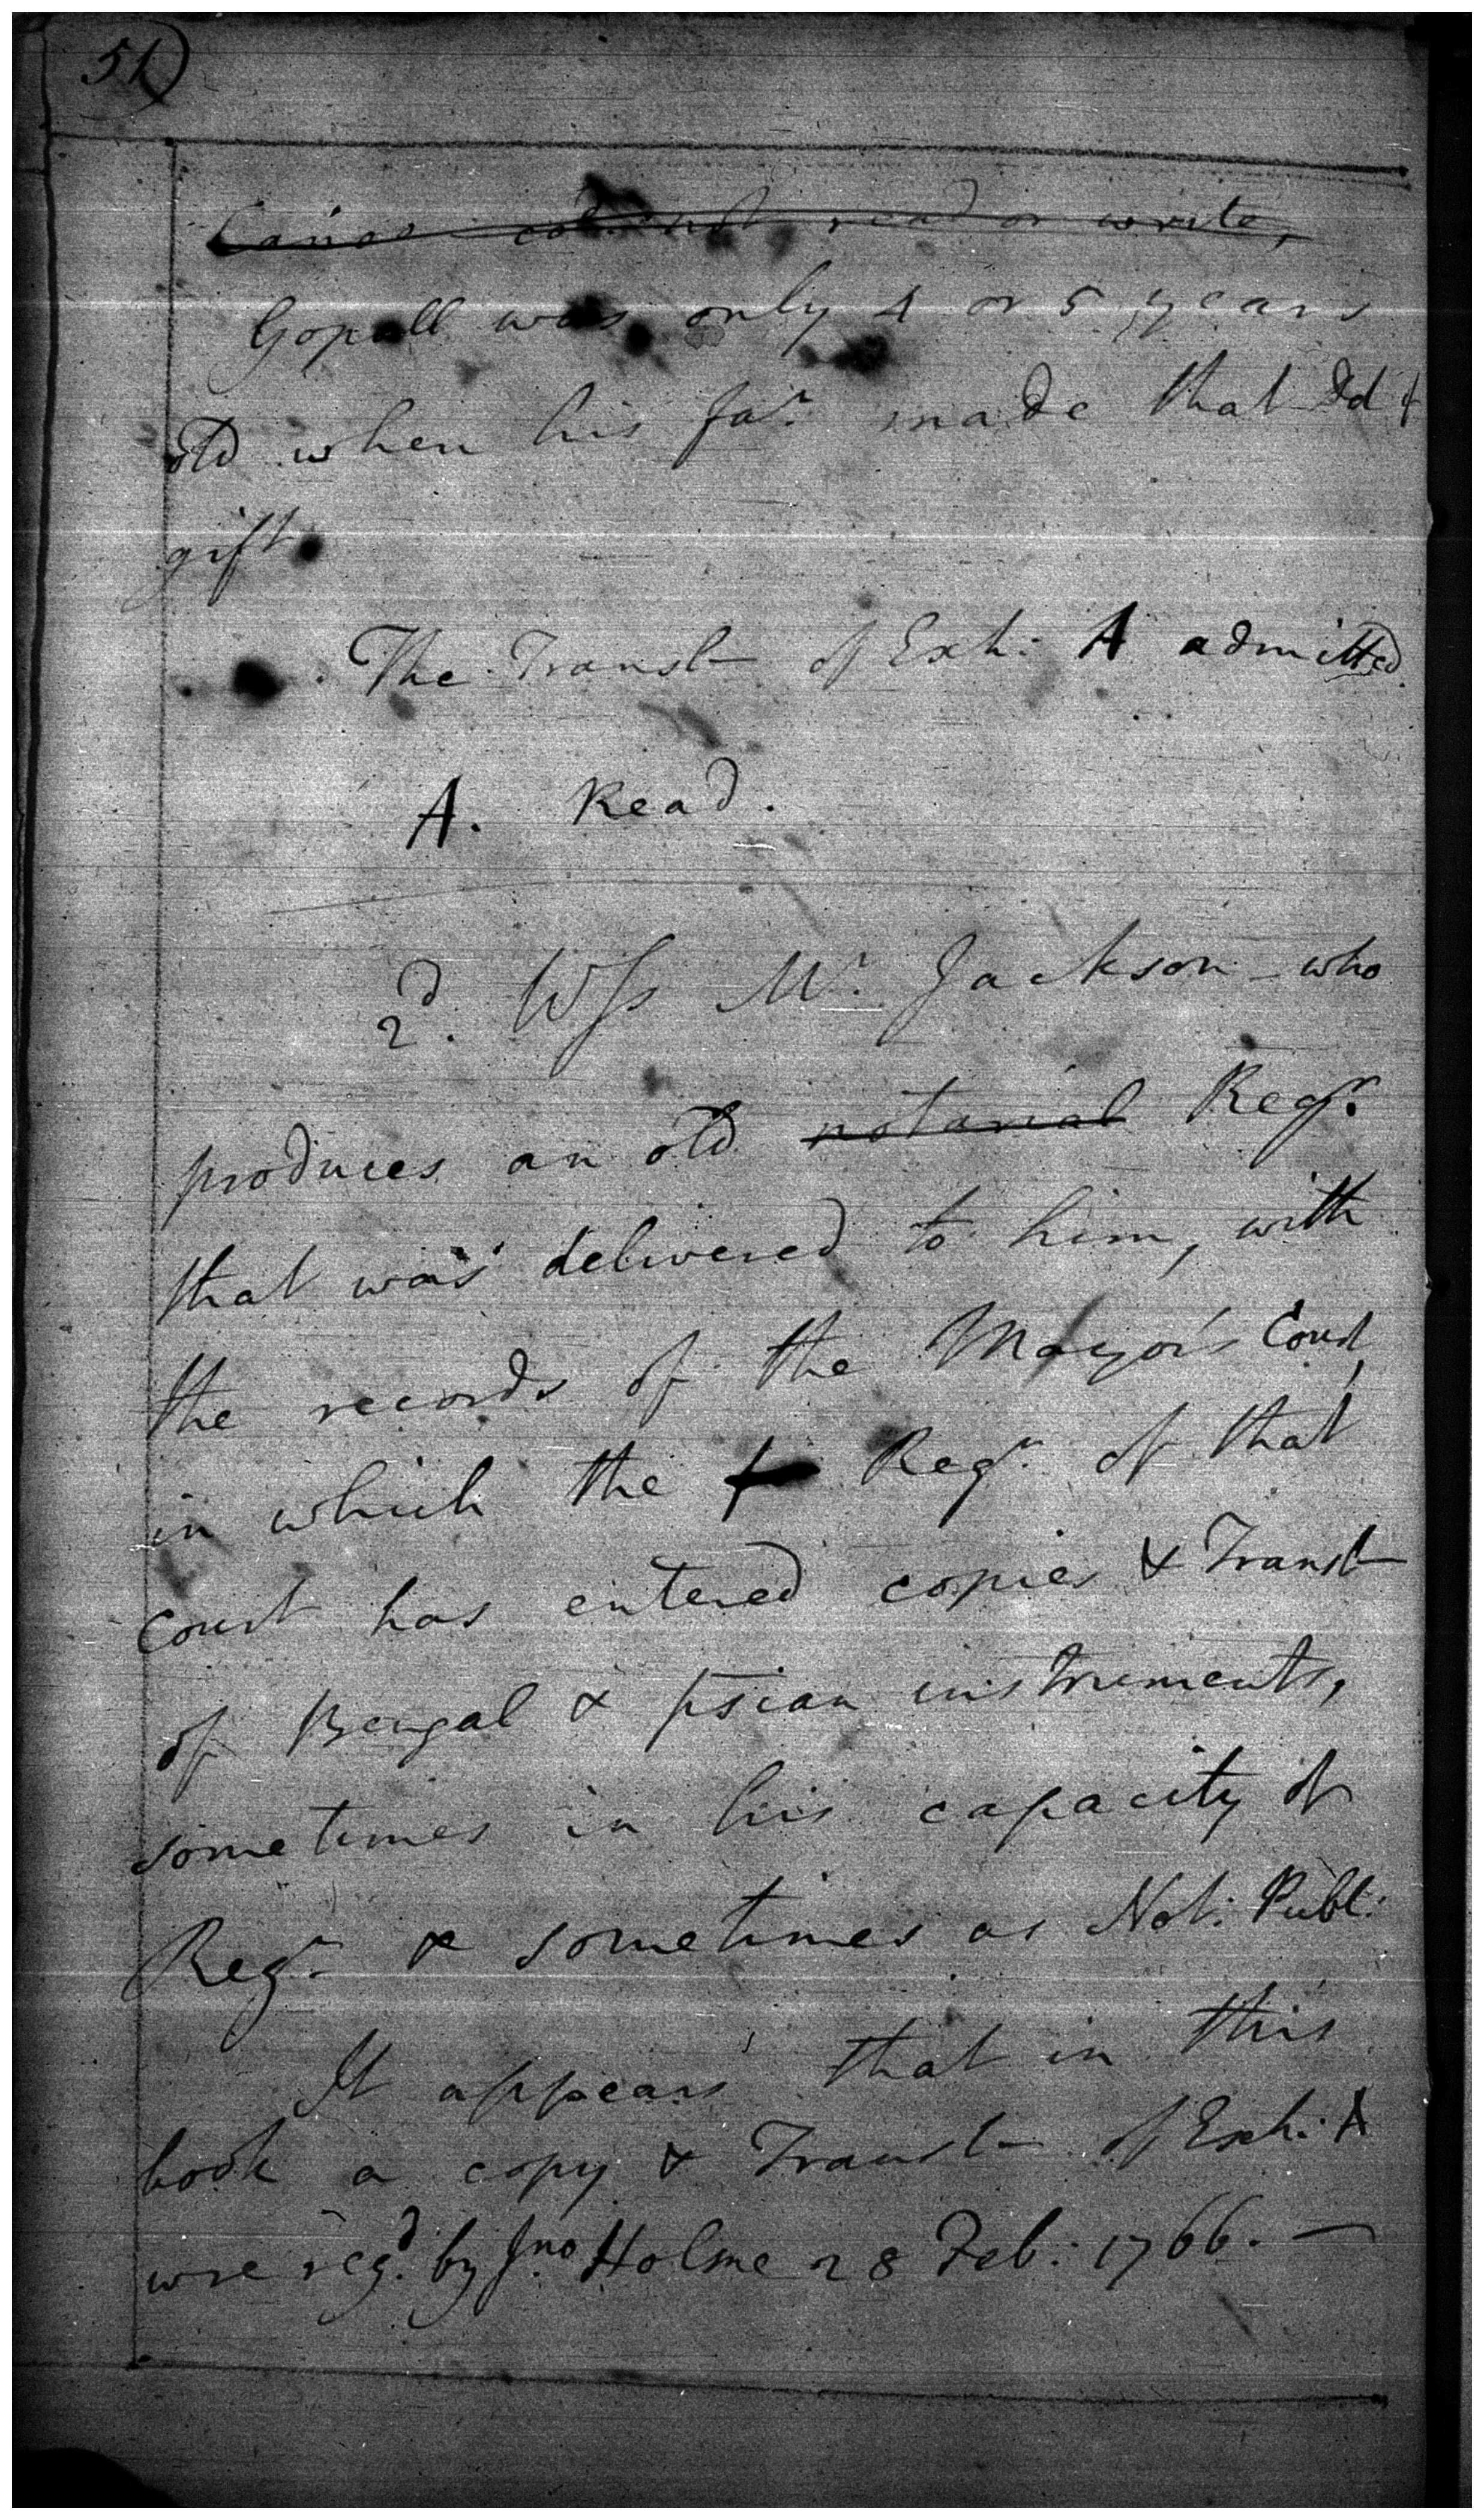 51)
cod not read or write,
Gopall was only 4 or 5 years
old when his far. made that Dd
gift
The Transl of Exh: A admitted.
A. Read.
2d. Wss Mr. Jackson who
produces an old notarial Regr.
that was delivered to him, with
the records of the Mayor's Court,
in which the Regr. of that
court has entered copies & Transl
of Bengal & psian instruments,
sometimes in his capacity of
Regr. & sometimes as Not: Publ:
It appears that in this
book a copy & Transl of Exh: A
wre regd. by Jno Holme 28 Feb: 1766. —